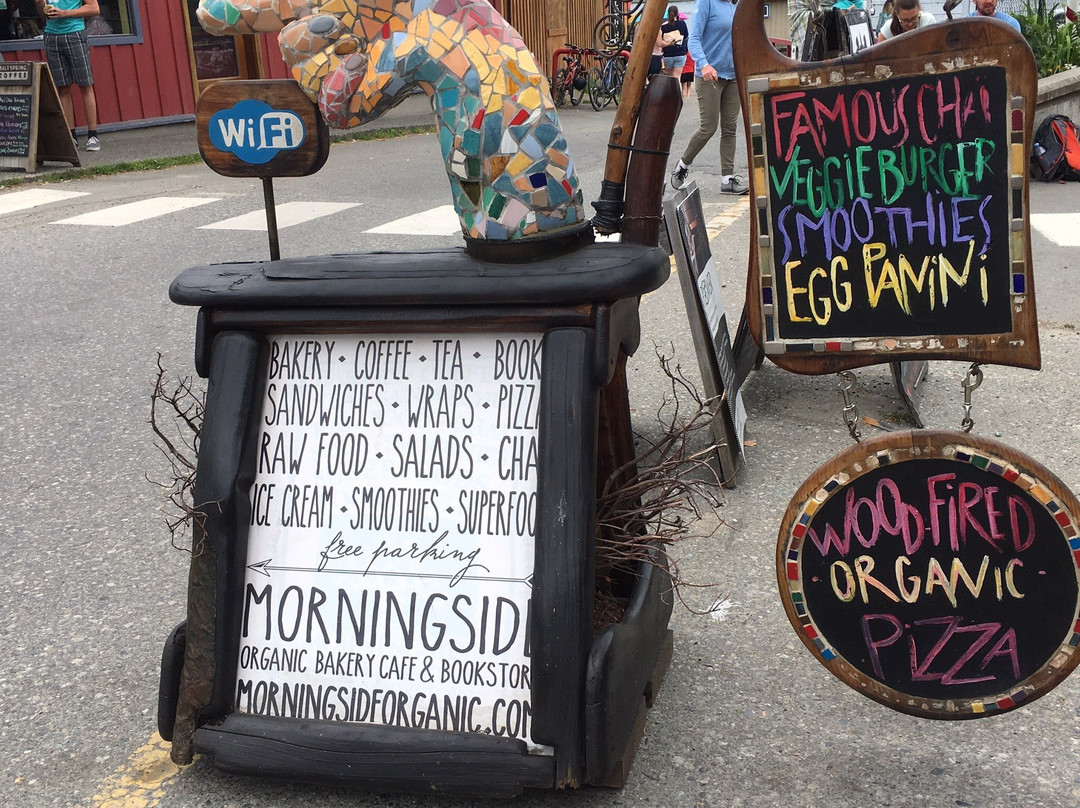 WiFi
BAKERY • COFFEE • TEA • BOOK
SANDWICHES • WRAPS • PIZZ
RAW FOOD • SALADS • CHA
ICE CREAM • SMOOTHIES • SUPERFOO
free parking
MORNINGSID
ORGANIC BAKERY CAFE & BOOKSTOR
MORNINGSIDEORGANIC.COM
FAMOUS CHAi
VEGGiEBURGER
SMOOTHiES
EGG PANiNi
WOOD-FiRED
• ORGANiC •
PiZZA
COFFEE